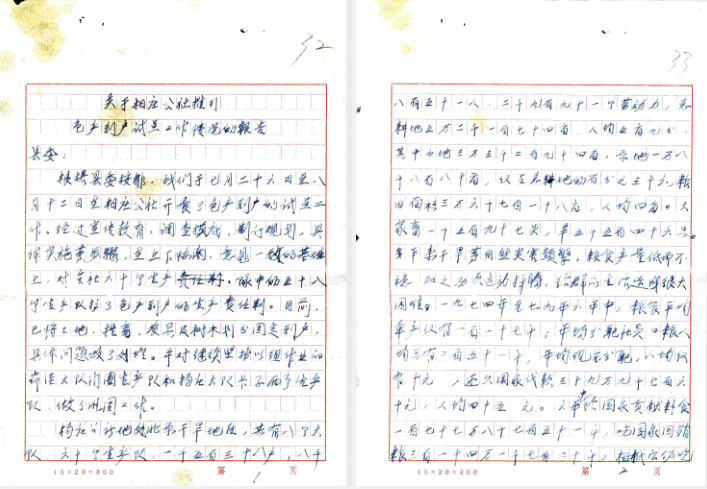 32
关于柏庄公社推行
包产到户试点工作情况的报告
县委：
根据县委按都，我们于七月二十六日至八
月十二日在柏庄公社开展了包产到户的试点工
作。经过宣传教育，调查摸底，制订规划，具
体实施等步骤，在上下协商，意见一致的基础
上，对全社六十个生产责任制。录中的五十八
个生产队搞了包产到户的生产责任制。目前，
已将土地、种畜、农具及树木划分固定到户，
具体问题做了处理。并对继续坚持以组作业的
大队的圈生产队和杨庄大队长子两个生产
队，做了巩固工作。
地处北部干旱地区，共有八个大
队，六十个生产队，一千五百三十八户，八千
15×20=300 第 1 页
33
八百五十一人，二千九百九十一个劳动力，总
耕地五万二千一百七十四亩，人均五亩九分，
其中山地三万三千二百九十四亩，一万八
千八百八十亩，仅占总耕地的百分之三十六，粮
田面积三万六千七百一十八亩，人均四亩。大
家畜一千五百九十七头，羊五千五百四十六只。
多年来干旱等自然灾害频繁，粮食产量低而不
稳，加之，给群众生活造成很大
困难。一九七四年至七九年六年中，粮食平均
年产仅有一百一十七斤；年均分配社员口粮人
均二百五十一斤，年均现金分配，人均仅
有十元，还欠国家代款三十九万九千七百六
十元，人均四十五元。六年给国家贡献粮食
一百七十七万八千七百五十一斤，吃国家回销
粮三百一十四万一千七百二十斤，
15×20=300 第 2 页